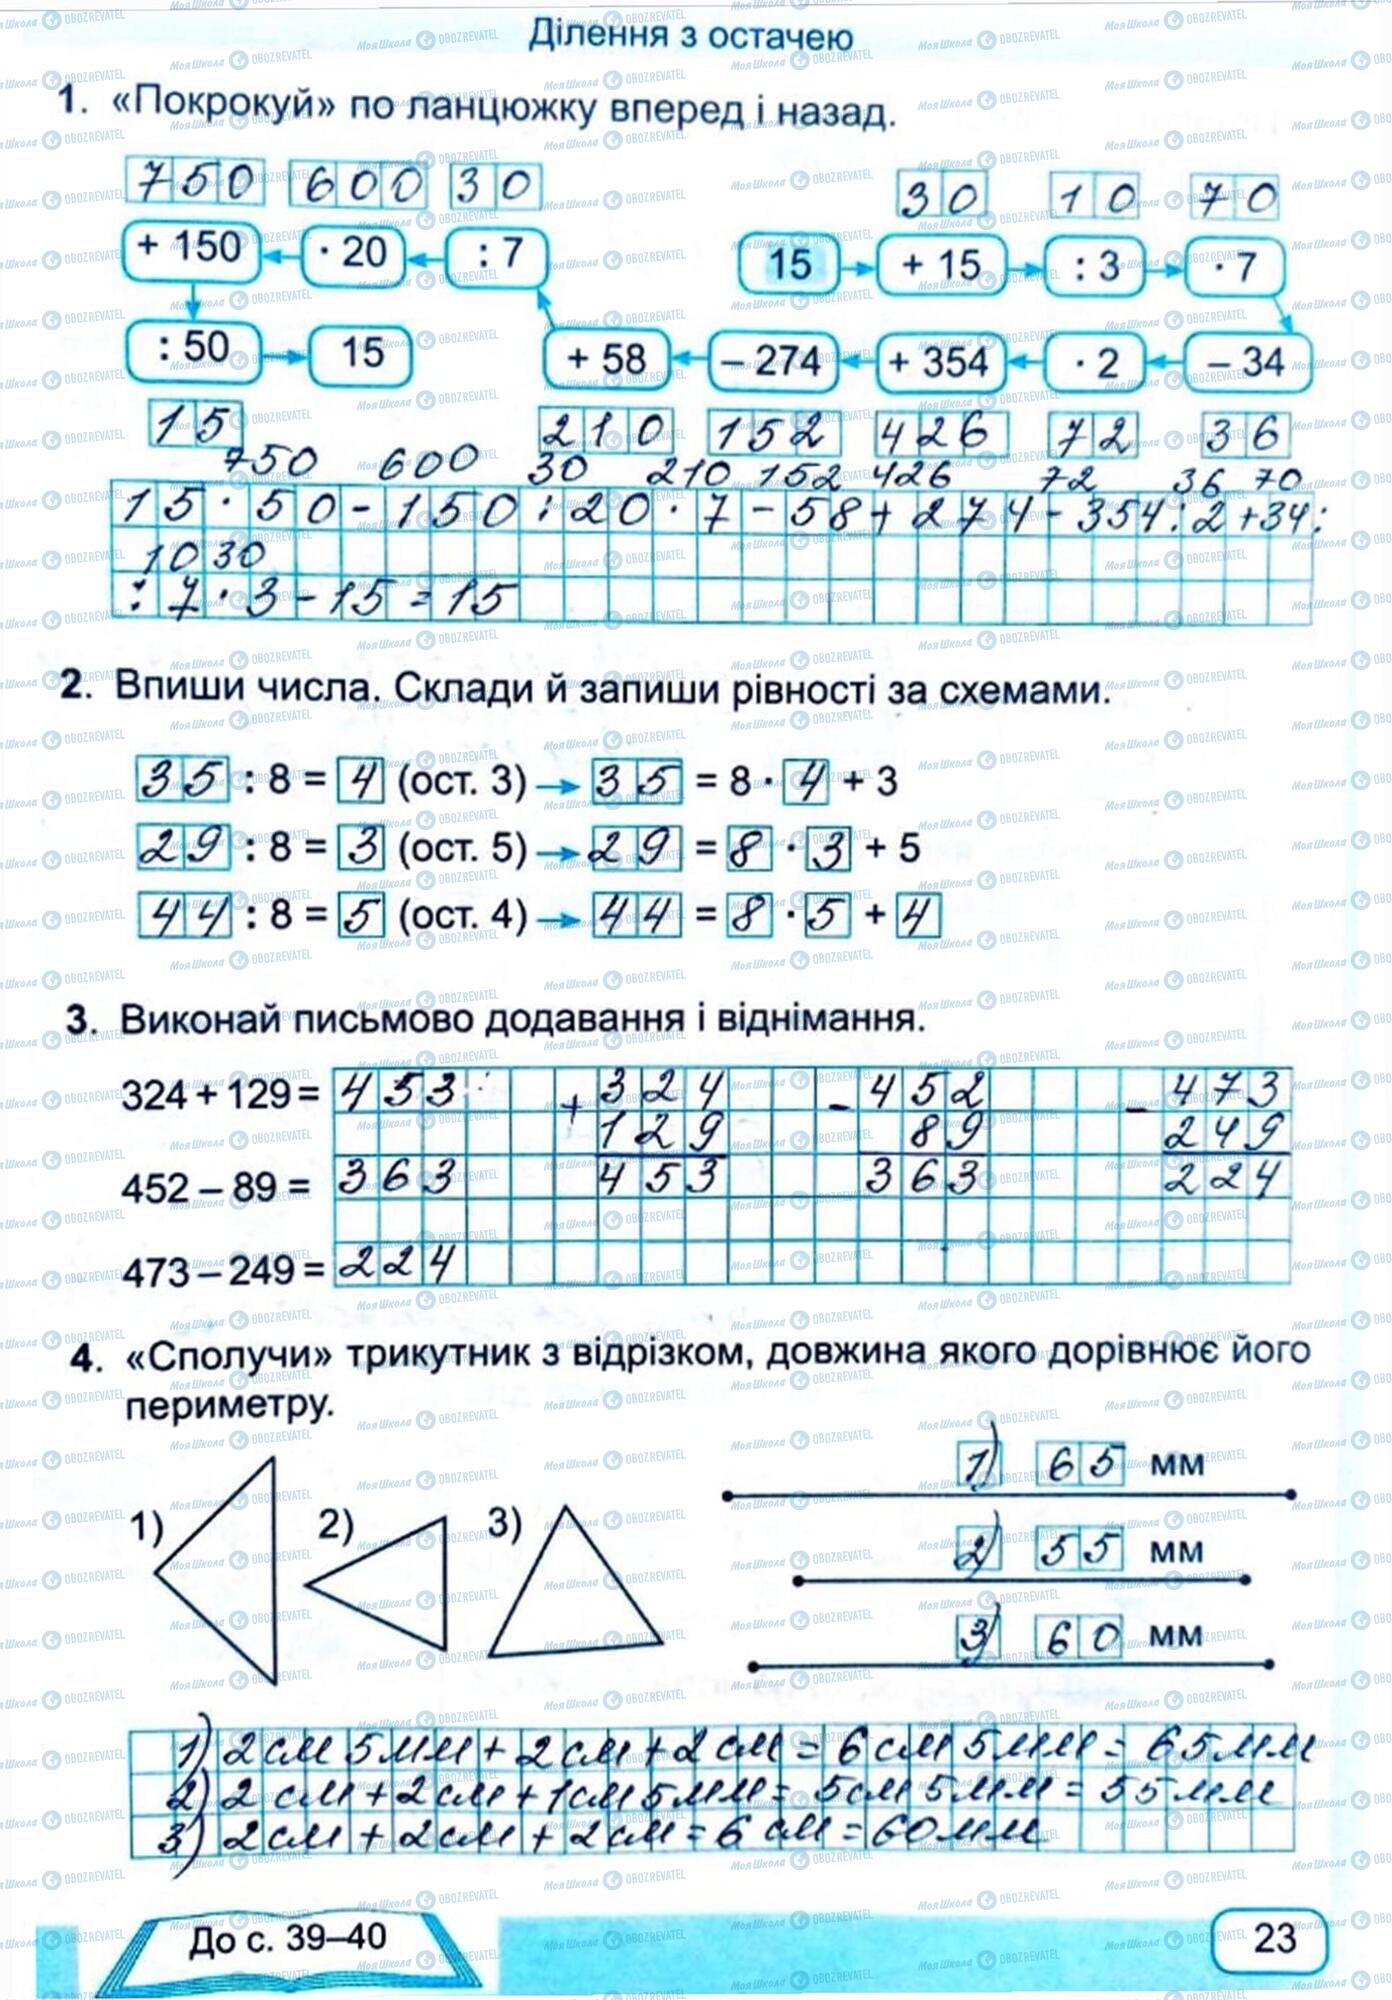 Ділення з остачею
1. «Покрокуй» по ланцюжку вперед і назад.
750 600 30 30 10 70
+ 150 · 20 : 7 15 + 15 : 3 · 7
: 50 15 + 58 – 274 + 354 · 2 – 34
15 210 152 426 72 36
750 600 30 210 152 426 72 36 70
15 · 50 - 150 : 20 · 7 - 58 + 274 - 354 : 2 + 34 :
10 30
: 7 · 3 - 15 = 15
2. Впиши числа. Склади й запиши рівності за схемами.
35 : 8 = 4 (ост. 3) → 35 = 8 · 4 + 3
29 : 8 = 3 (ост. 5) → 29 = 8 · 3 + 5
44 : 8 = 5 (ост. 4) → 44 = 8 · 5 + 4
3. Виконай письмово додавання і віднімання.
324 + 129 = 453 + 324 - 452 - 473
129 89 249
452 – 89 = 363 453 363 224
473 – 249 = 224
4. «Сполучи» трикутник з відрізком, довжина якого дорівнює його
периметру.
1) 65 мм
1) 2) 3)
2) 55 мм
3) 60 мм
1) 2 см 5 мм + 2 см + 2 см = 6 см 5 мм = 65 мм
2) 2 см + 2 см + 1 см 5 мм = 5 см 5 мм = 55 мм
3) 2 см + 2 см + 2 см = 6 см = 60 мм
До с. 39–40
23
МояШкола OBOZREVATEL